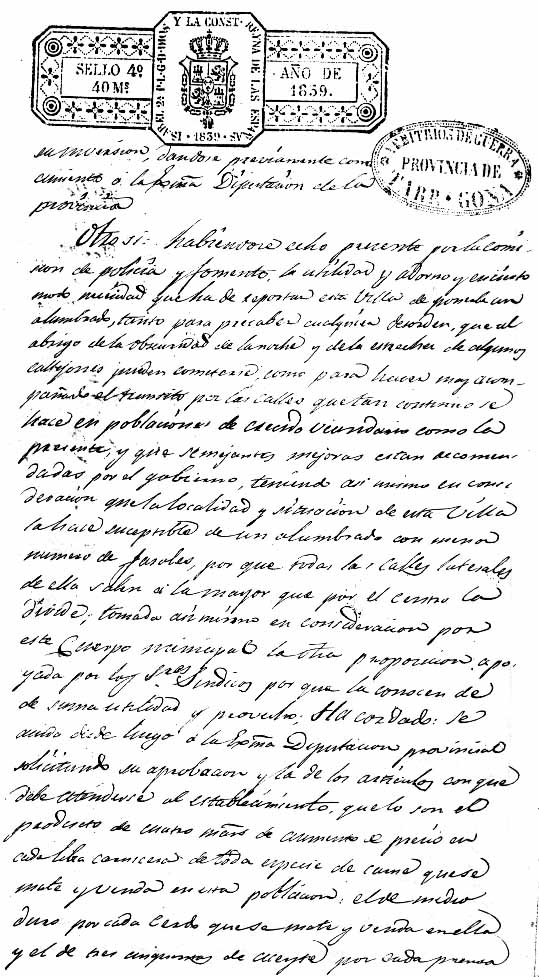 SELLO 4º
40 Ms
Y LA CONST.
REYNA DE LAS ESPAÑAS
1859
ISABEL 2ª P.L.G.D.DIOS
AÑO DE
1859.
ARBITRIOS DE GUERRA
PROVINCIA DE
TARRAGONA
su inversion, dandose previamente cono-
cimiento á la Exma Diputacion de la
provincia
Otro si: habiendose echo presente por la comi-
sion de policia y fomento, la utilidad y adorno y en cierto
modo, necesidad que ha de reportar esta Villa de ponerla un
alumbrado, tanto para precaber cualquiera desorden, que al
abrigo de la obscuridad de la noche y de la estrechez de algunos
callejones pueden cometerse, como para hacer mas acom-
pañado el transito por las calles que tan continuo se
hace en poblaciones de crecido vecindario como la
presente, y que semejantes mejoras estan recomen-
dadas por el gobierno, teniendo asi mismo en consi-
deracion que la localidad y situacion de esta Villa
la hace suceptible de un alumbrado con menor
numero de faroles, por que todas las calles laterales
de ella salen á la mayor que por el centro la
divide; tomada asi mismo en consideracion por
este Cuerpo municipal la otra proporcion, apo-
yada por los Sres Sindicos por que la conocen de
de suma utilidad y provecho; Ha cordado: se
acuda desde luego á la Exma Diputacion provincial
solicitando su aprobacion y la de los articulos con que
debe atenderse al establecimiento, que lo son el
producto de cuatro mars de aumento de precio en
cada libra carnicera de toda especie de carne que se
mate y venda en esta poblacion; el de medio
duro por cada Cerdo que se mate y venda en ella
y el de tres cinquenas de aceyte por cada prensa